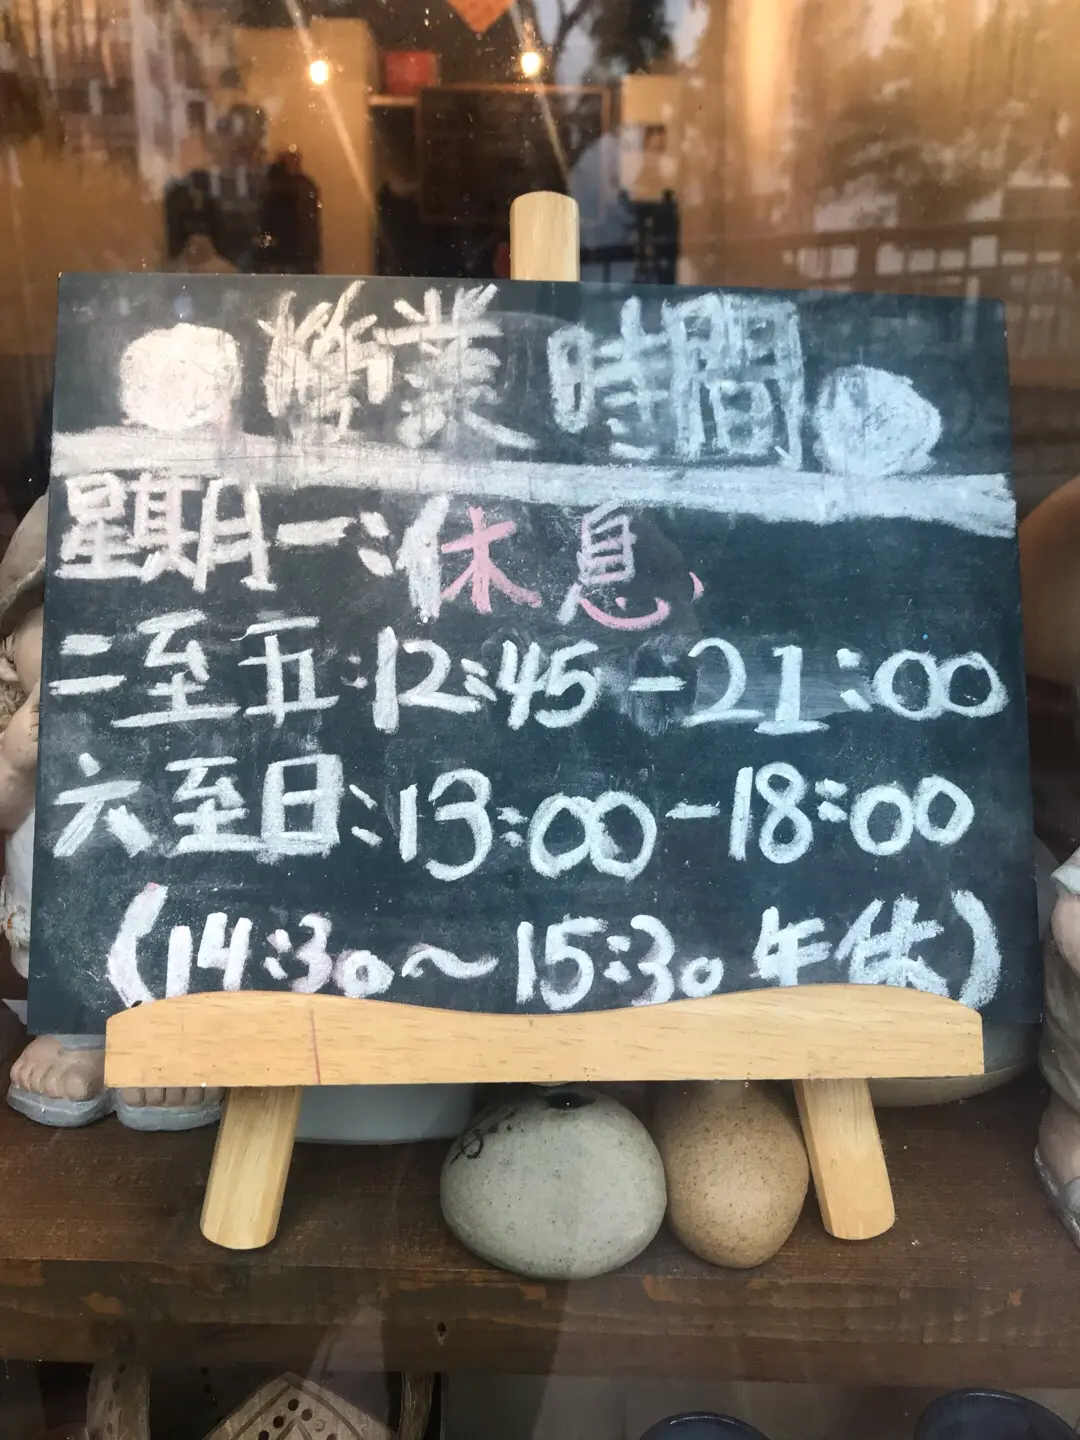 營業時間
星期一:休息
二至五:12:45-21:00
六至日:13:00-18:00
(14:30~15:30 午休)